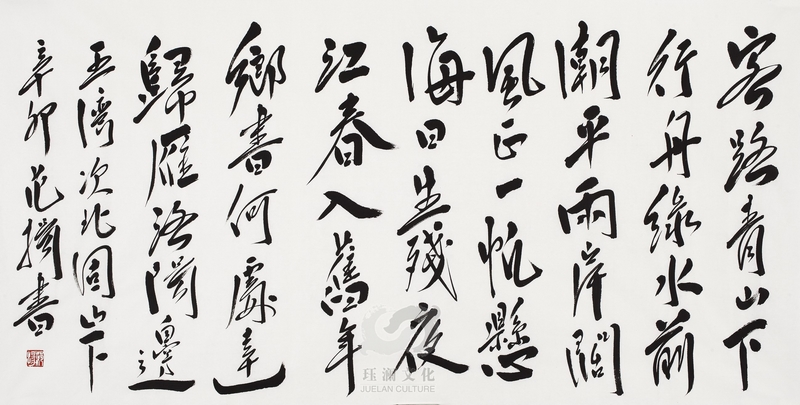 客路青山下
行舟綠水前
潮平兩岸闊
風正一帆懸
海日生殘夜
江春入舊年
鄉書何處達
歸雁洛陽邊
王灣次北固山下
辛卯范書
珏瀾文化
JUELAN CULTURE